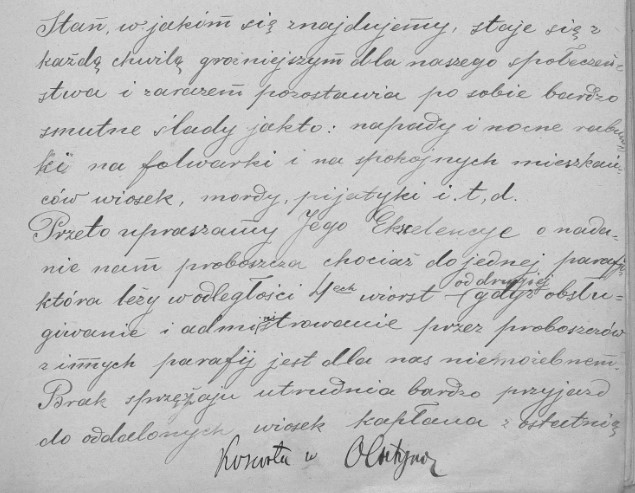 Stan, w jakim się znajdujemy, staje się z
każdą chwilą groźniejszym dla naszego społeczeń-
stwa i zarazem pozostawia po sobie bardzo
smutne ślady jakto: napady i nocne rabun-
ki na folwarki i na spokojnych mieszkań-
ców wiosek, mordy, pijatyki i.t.d.
Przeto upraszamy Jego Ekscelencye o nada-
nie nam proboszcza chociaż do jednej parafji
która leży w odległości 4ech wiorst od drugiej gdyż obsłu-
giwanie i administrowanie przez proboszczów
z innych parafij jest dla nas niemożebnem.
Brak sprzężaju utrudnia bardzo przyjazd
do oddalonych wiosek kapłana z ostatnią
w